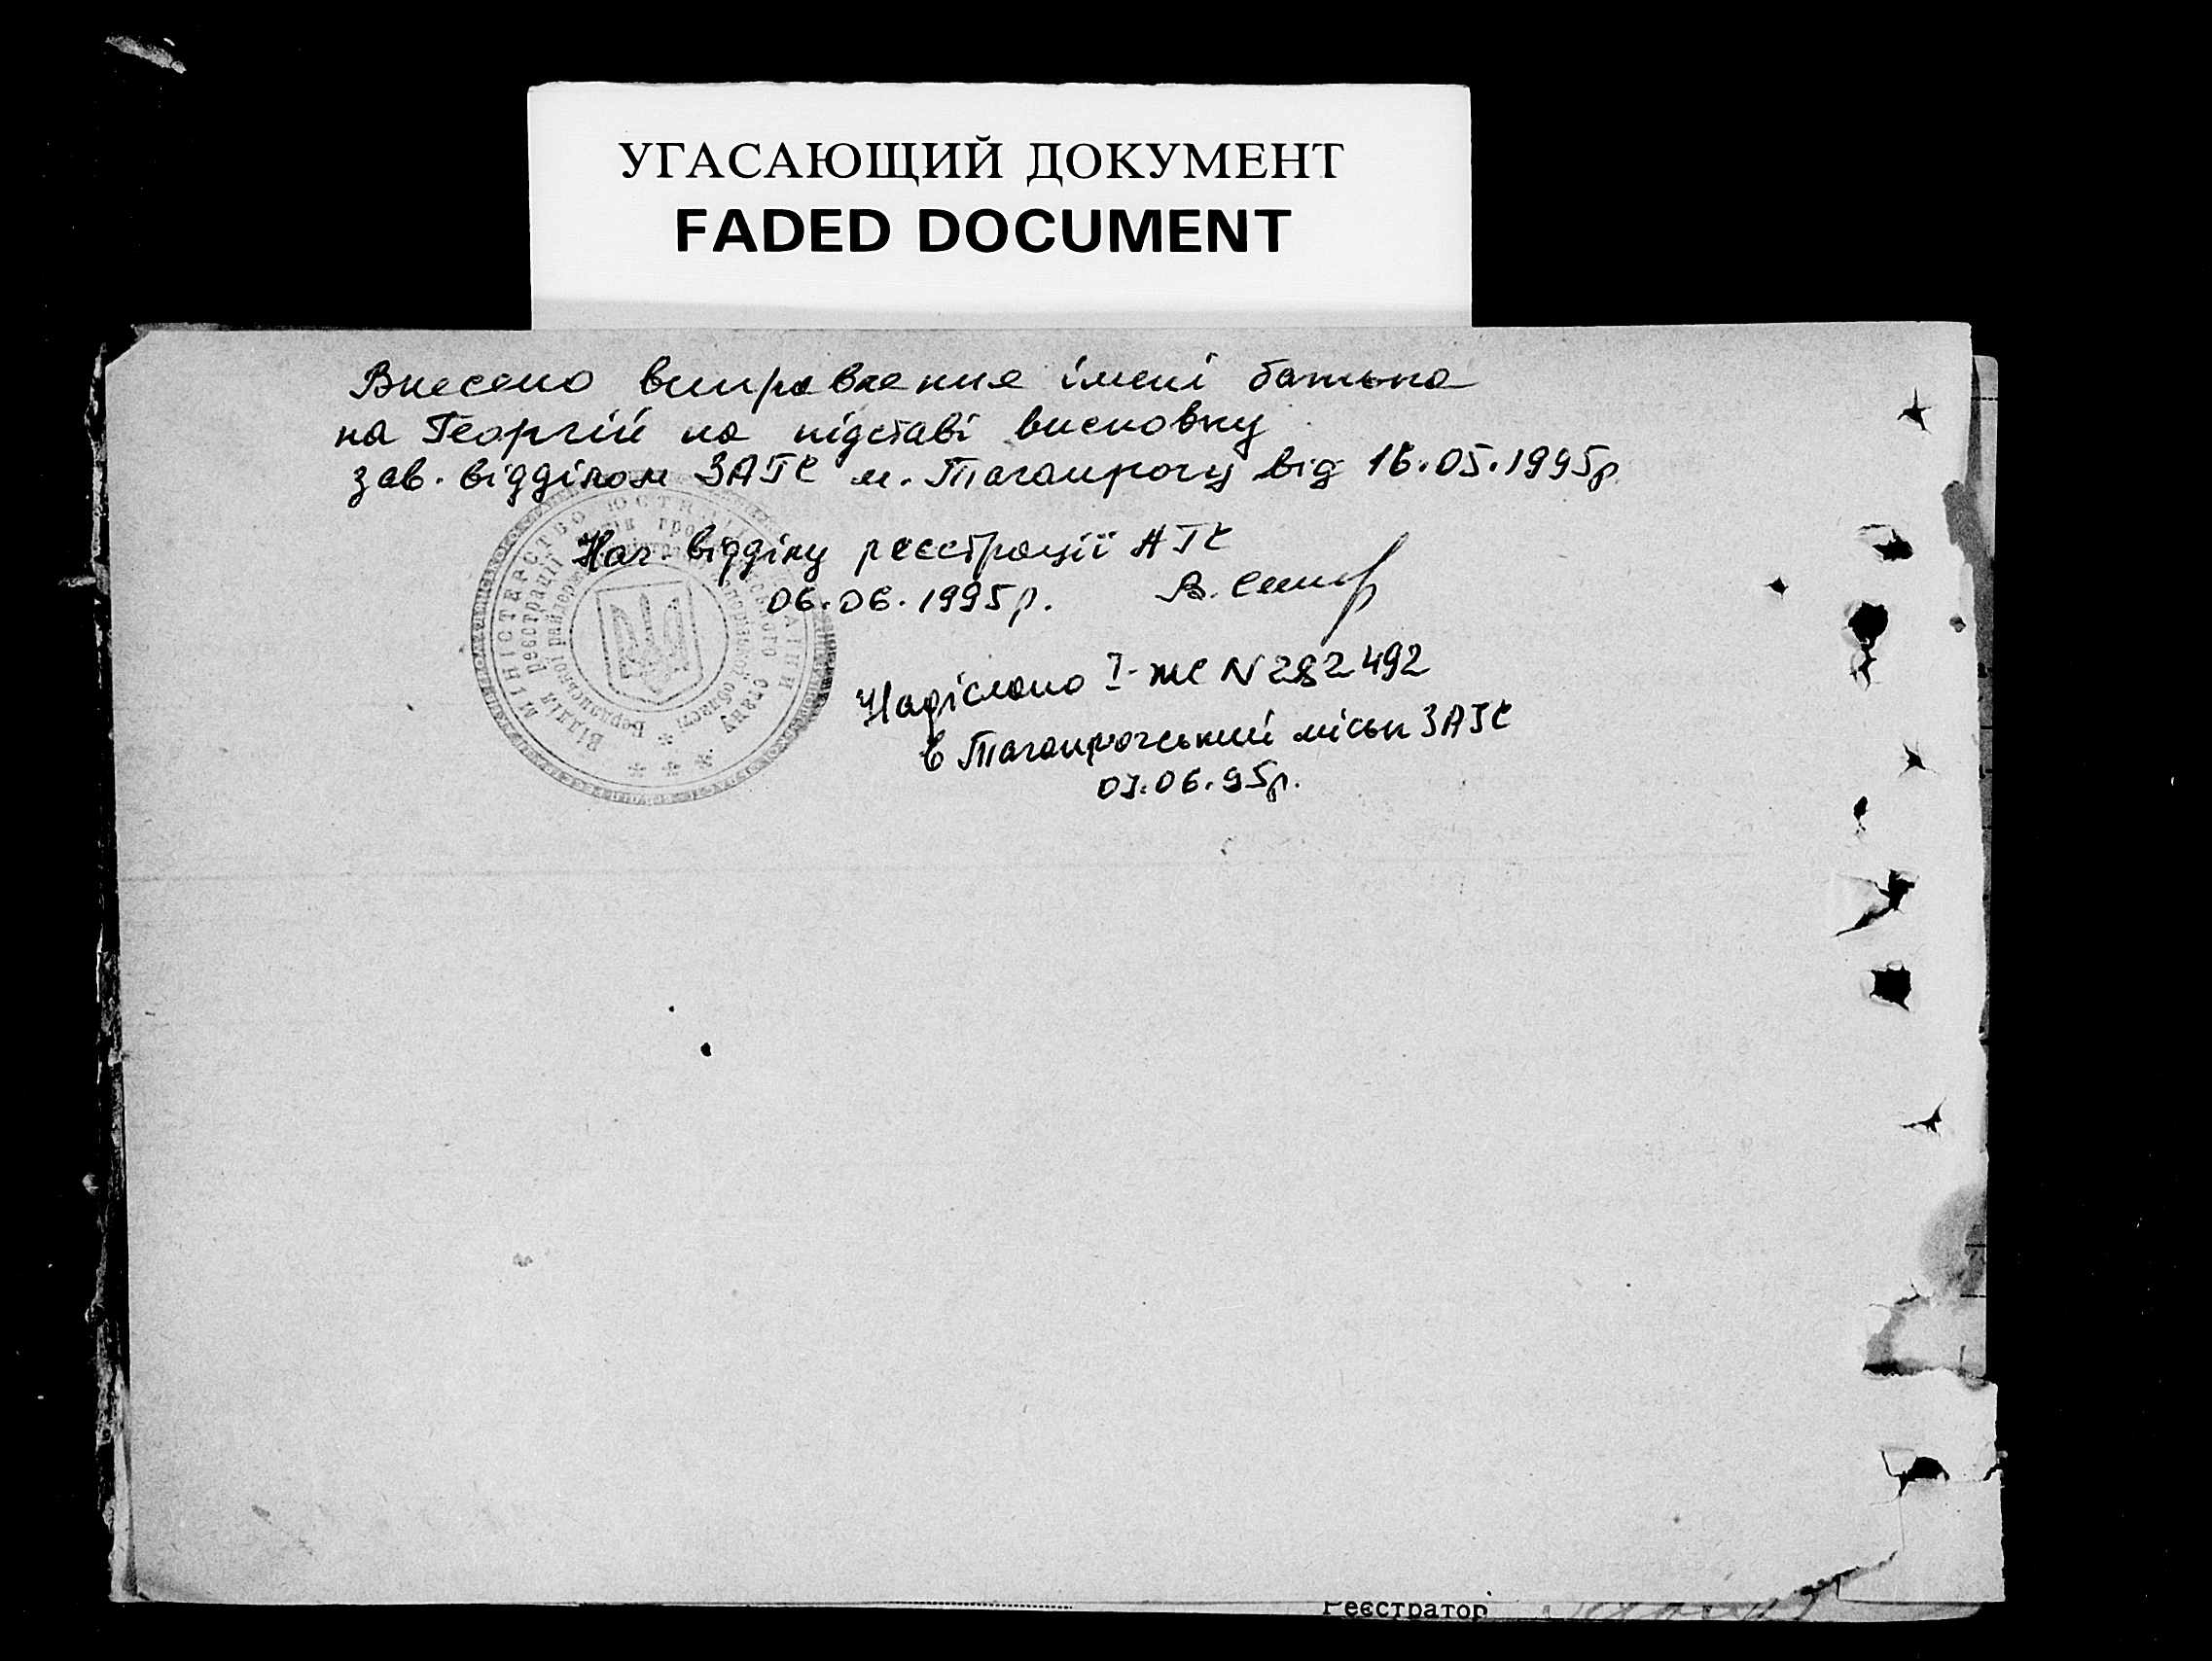 УГАСАЮЩИЙ ДОКУМЕНТ
FADED DOCUMENT
Внесено виправлення імені батька
на Георгій на підставі висновку
зав. відділом ЗАГС м. Таганрогу від 16.05.1995р.
Нач. відділу реєстрації АГС
06.06.1995р. В.
МІНІСТЕРСТВО ЮСТИЦІЇ УКРАЇНИ
Відділ реєстрації актів громадянського стану
Бердянської райдержадміністрації Запорізької області
Надіслано I-жс N 282492
в Таганрогський міськ ЗАГС
07.06.95р.
Реєстратор